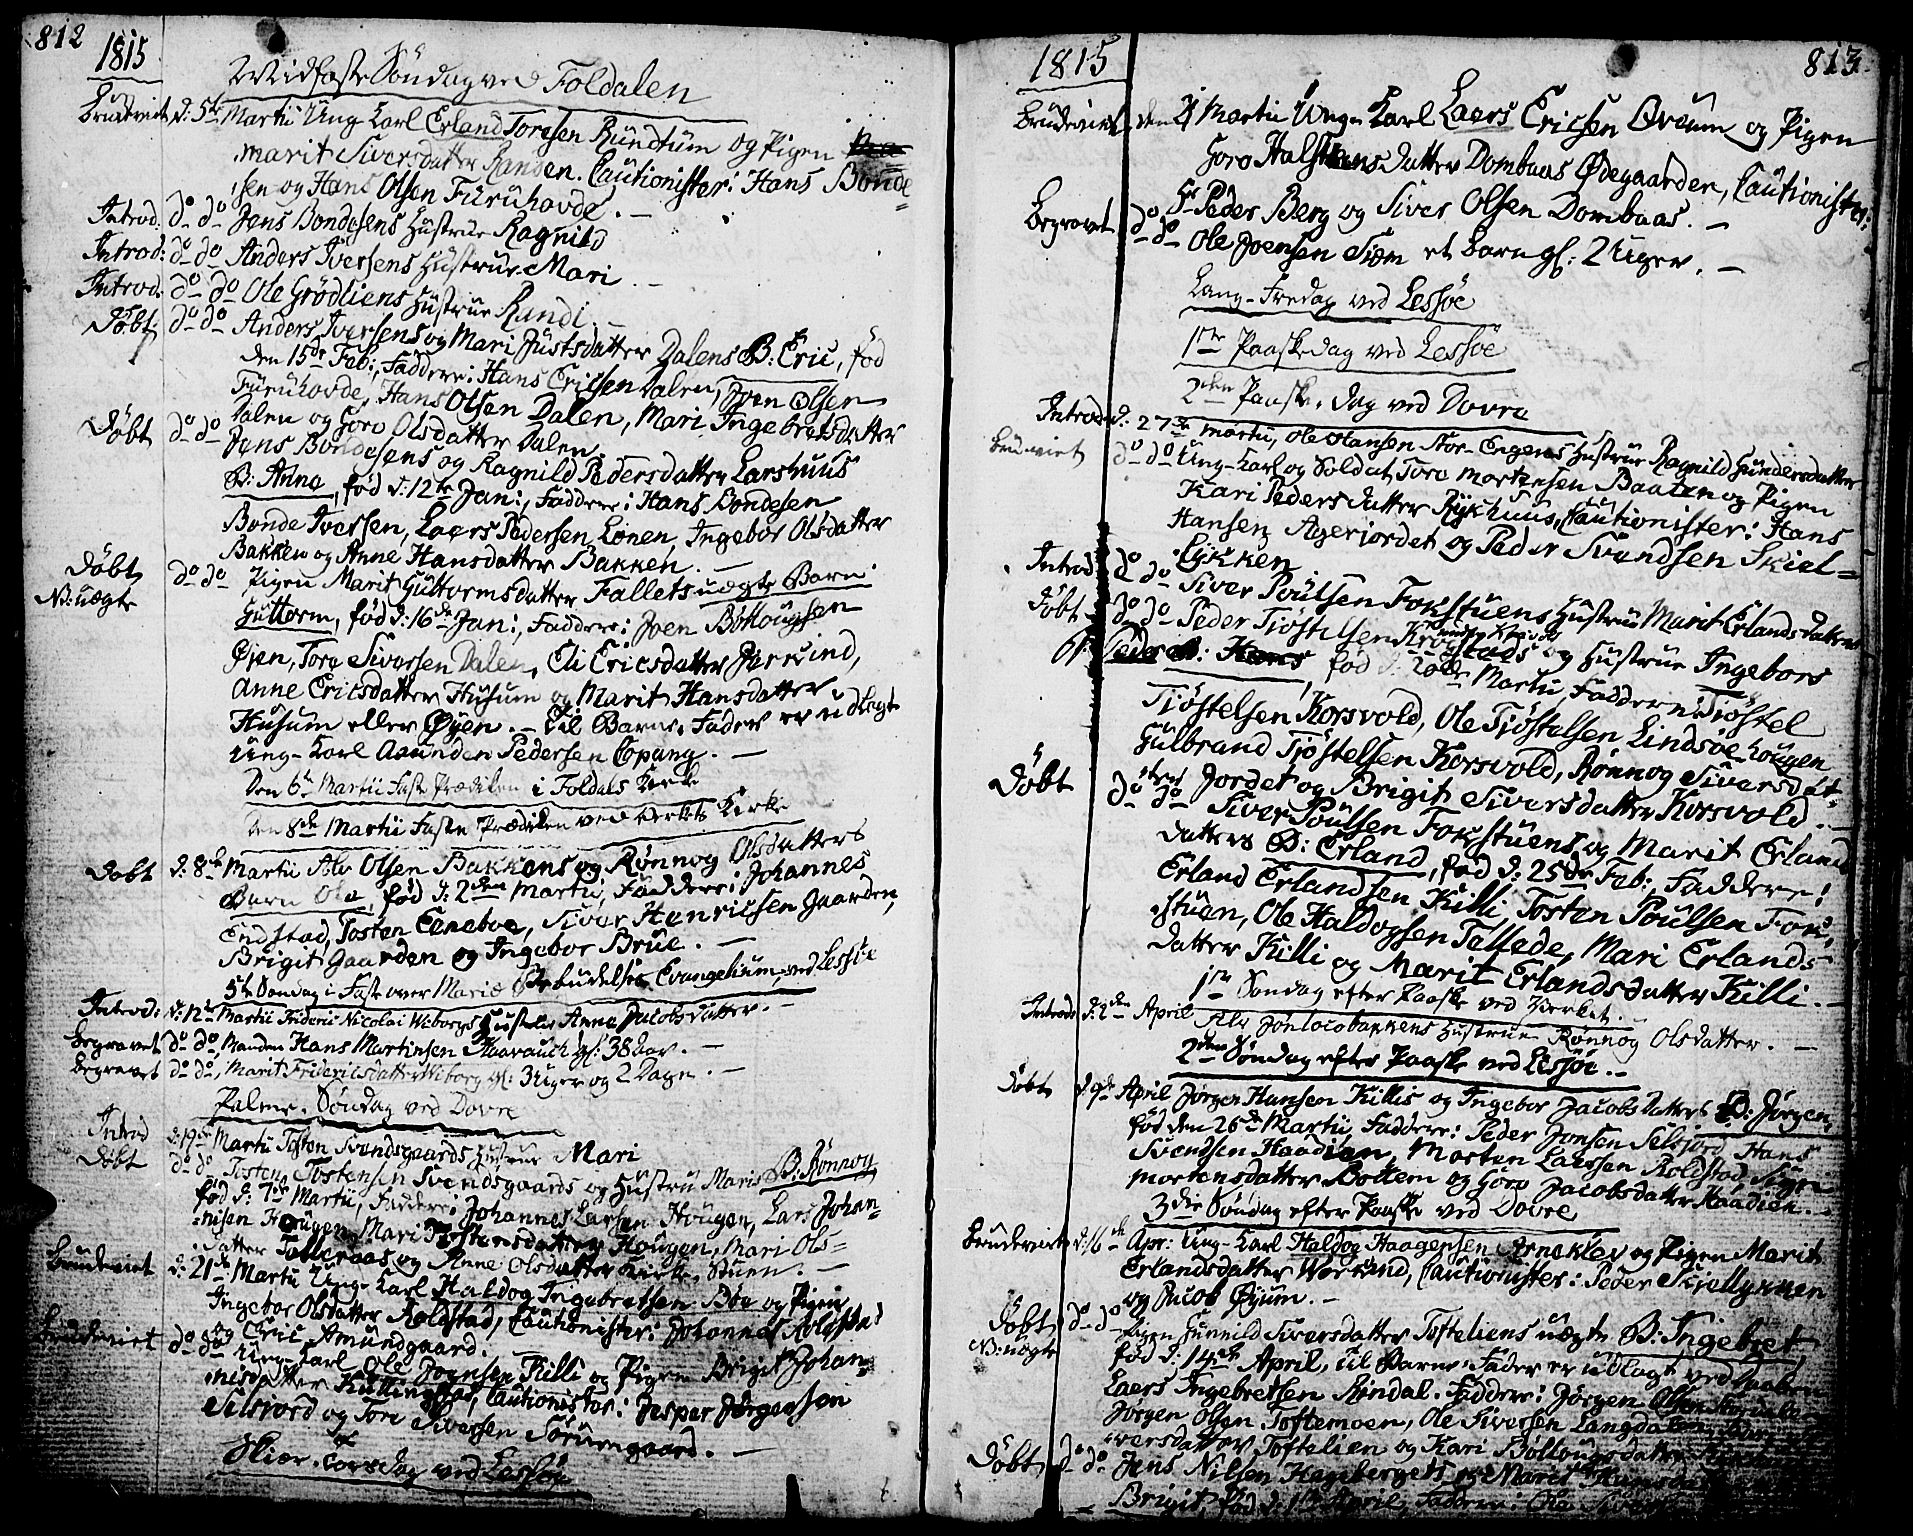 812
1815
Midfaste Söndag ved Foldalen
Brudeviet d: 5te Martii Ung Karl Erland Toresen Rundtum og Pigen
Marit Siversdatter Randen. Cautionister: Hans Bonde=
sen og Hans Olsen Furuhovde. —
Introd: do do Jens Bondesens Hustrue Ragnild
Introd: do do Anders Iversens Hustrue Mari
Introd: do do Ole Grödliens Hustrue Randi
Döbt do do Anders Iversens og Mari Justsdatter Dalens B: Eric, fød
den 15de Feb:, Faddere: Hans Ericsen Dalen, Joen Olsen
Furuhovde, Hans Olsen Dalen, Mari Ingebretsdatter
Dalen og Goro Olsdatter Dalen.
Döbt do do Jens Bondesens og Ragnild Pedersdatter Larshuus
B: Anne, fød d: 12te Jan:, Faddere: Hans Bondesen
Bonde Iversen, Laers Pedersen Lonen, Ingebor Olsdatter
Bakken og Anne Hansdatter Bakken. —
Döbt do do Pigen Marit Guttormsdatter Fallets uægte Barn
N: uægte
Guttorm, fød d: 16de Jan:, Faddere: Joen Bottougsen
Øjen, Tore Siversen Dalen, Eli Ericsdatter
Anne Ericsdatter Husum og Marit Hansdatter
Husum eller Øyen. — Til Barne-Fader er udlagt
Ung-Karl Amunden Pedersen Copang. —
Den 6te Martii Faste Prædiken i Foldals Kirke
Den 8de Martii Faste Prædiken ved Verkets Kirke
Döbt d: 8de Martii Alv Olsen Bakkens og Rønnog Olsdatters
Barn Ole, fød d: 2den Martii, Faddere: Johannes
Endstad, Tosten Eeneboe, Siver Henricsen Gaarden,
Brigit Gaarden og Ingebor Brue. —
5te Søndag i Faste over Mariæ Bebudelses Evangelium, ved Lessöe
Introd: d: 12te Martii Frideric Nicolai Wiborgs Hustrue Anne Jacobsdatter. —
Begravet do do, Manden Hans Martinsen gl: 38 Aar. —
Begravet do do, Marit Fridericsdatter Wiborg gl: 3 Uger og 2 Dage. —
Palme-Søndag ved Dovre
Introd d: 19de Martii Tosten Svendsgaards Hustrue Mari
Döbt do do Tosten Tostensen Svendsgaards og Hustru Maris B: Rönnog
fød d: 7de Martii, Faddere: Johannes Larsen Hougen, Lars Johan=
nisen Hougen, Mari Tostensdatter Hougen, Mari Ols=
datter Talleraas og Anne Olsdatter Kirke-Stuen. —
Brudeviet d: 21de Martii Ung-Karl Haldog Ingebretsen Böe og Pigen
Ingebor Olsdatter Roldstad, Cautionister: Johannes Rolstad
og Eric Amundgaard.
Brudeviet do do Ung-Karl Ole Joensen Killi og Pigen Brigit Johan=
nisdatter Kullingstad, Cautionister: Jesper Jørgensen
Selsiord og Tore Siversen Sørumgaard. —
Skier-Torsdag ved Lessöe

1815
813.
Brudeviet, den 21 Martii Ung-Karl Laers Ericsen Öveum og Pigen
Goro Halstensdatter Dombaas Ødegaarden, Cautionister:
Hr Peder Berg og Siver Olsen Dombaas. —
Begravet do do Ole Joensen et Barn gl: 2 Uger. —
Lang-Fredag ved Lessöe
1ste Paaskedag ved Lessöe
2den Paaske-Dag ved Dovre
Introd: d: 27de Martii, Ole Hansen Stor-Engens Hustrue Ragnild Gundersdatter
Brudeviet do do Ung-Karl og Soldat Tore Mortensen Baaten og Pigen
Kari Pedersdatter Rykhuus, Cautionister: Hans
Hansen Agerjordet og Peder Svendsen Skiel=
lykken
Introd do do Siver Poulsen Fokstuens Hustrue Marit Erlandsdatter
Döbt do do Peder Tiöstelsen Krogstads og Hustrue Ingebors
Peder, fød d: 20de Martii, Faddere: Tiöstel
Tiöstelsen Korsvold, Ole Tiöstelsen Lindsøe Lougen
Gulbrand Tiöstelsen Korsvold, Rønnog Siversdat=
ter Jordet og Brigit Siversdatter Korsvold. —
Döbt do do Siver Poulsen Fokstuens og Marit Erlands
datters B: Erland, fød d: 25de Feb:, Faddere:
Erland Erlandsen Killi, Tosten Poulsen Fok=
stuen, Ole Haldogsen Tallede, Mari Erlands=
datter Killi og Marit Erlandsdatter Killi. —
1te Søndag efter Paaske ved Værket.
Introd: d: 2den April Alv Jonlocobakkens Hustrue Rønnog Olsdatter. —
2den Søndag efter Paaske ved Lessöe. —
Döbt d 9de April Jørgen Hansen Killis og Ingebor Jacobsdatters B: Jørgen,
fød den 26de Martii, Faddere: Peder Jonsen Selsjord, Hans
Svendsen Haadien, Morten Laersen Roldstad, Sigri
Mortensdatter Bottem og Goro Jacobsdatter Haadien. —
3die Søndag efter Paaske ved Dovre
Brudeviet d: 16de Apr: Ung-Karl Haldog Haagensen Arneklev og Pigen Marit
Erlandsdatter Cautionister: Peder Skiellykken
og Jacob Øyum. —
Döbt do do Pigen Gunnild Siversdatter Tofteliens uægte B: Ingebret,
N: uægte
fød d: 14de April, til Barne-Fader er udlagt ved Daaben
Laers Ingebretsen Rindal. Faddere: Jørgen Olsen
Jørgen Olsen Toftemoen, Ole Siversen
versdatter Toftelien og Kari Bottougsdatter
Döbt do do Jens Nilsen Hageberget og Marit
Brigit fød d: 1te April, Faddere: Ole Siversen